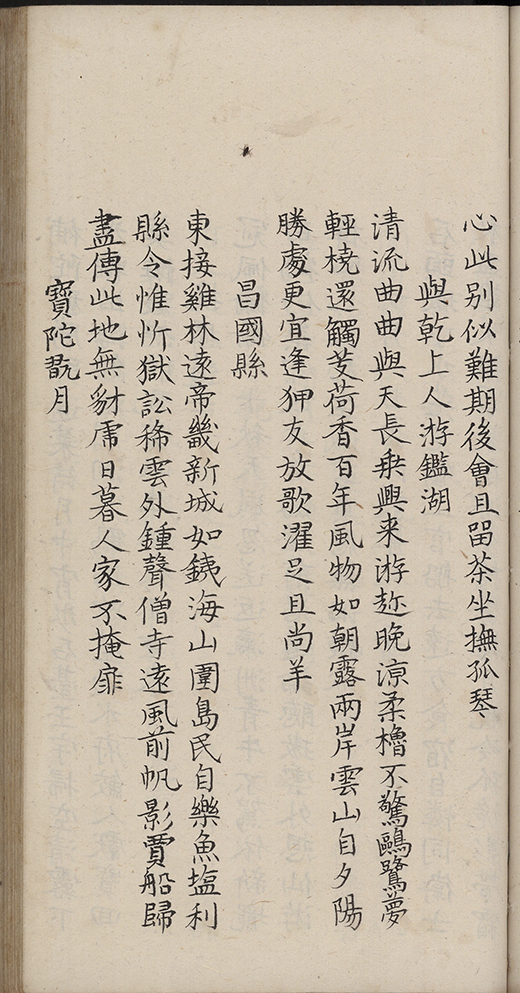 心此别似難期後會且留茶坐撫孤琴
與乾上人游鑑湖
清流曲曲與天長乗興来游趂晚涼柔櫓不驚鷗鷺夢
輕橈還觸芰荷香百年風物如朝露兩岸雲山自夕陽
勝處更宜逢狎友放歌濯足且尚羊
昌國縣
東接雞林遠帝畿新城如銕海山圍島民自樂魚塩利
縣令惟忻獄訟稀雲外鍾聲僧寺遠風前帆影賈船歸
盡傳此地無豺虎日暮人家不掩扉
寶陀翫月